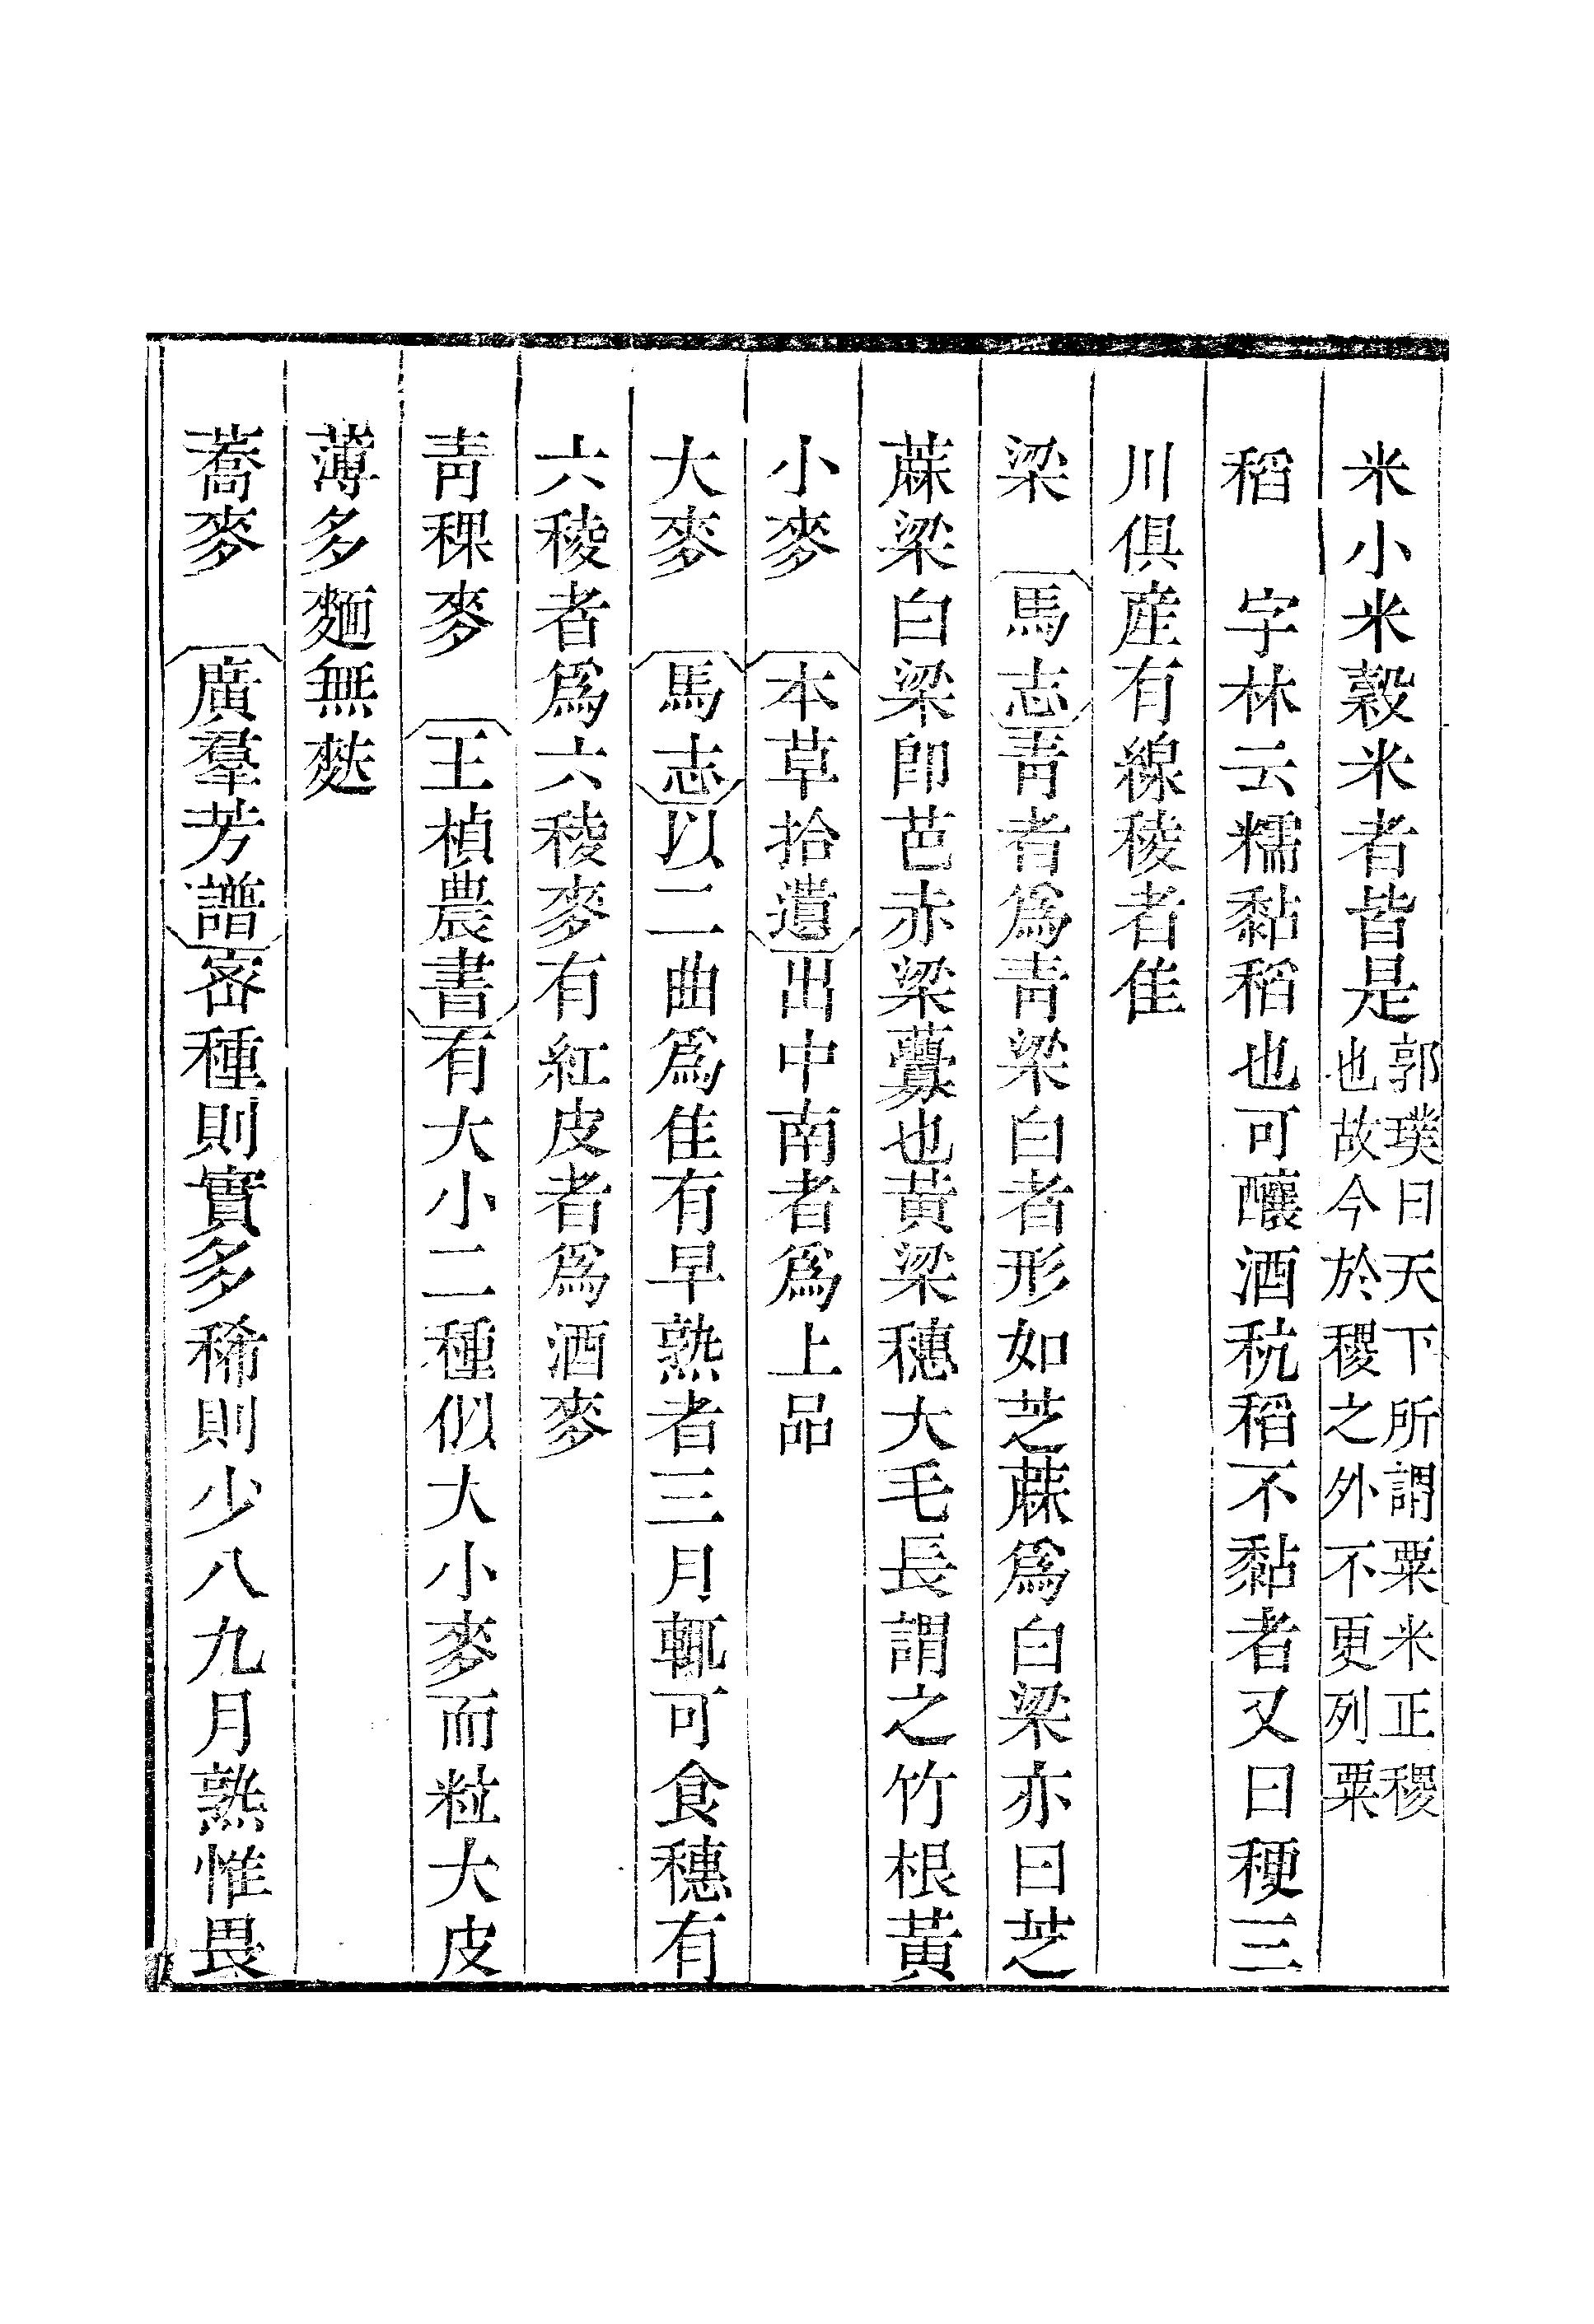 米小米穀米者皆是郭璞曰天下所謂粟米正稷也故今於稷之外不更列粟
稻　字林云糯黏稻也可釀酒秔稻不黏者又曰稉三
川俱産有線稜者佳
梁　馬志青者爲青梁白者形如芝蔴爲白梁亦曰芝
蔴梁白梁卽芑赤梁虋也黃梁穗大毛長謂之竹根黃
小麥　本草拾遺出中南者爲上品
大麥　馬志以二曲爲佳有早熟者三月輒可食穗有
六稜者爲六稜麥有紅皮者爲酒麥
青稞麥　王楨農書有大小二種似大小麥而粒大皮
薄多麵無麩
蕎麥　廣羣芳譜宻種則實多稀則少八九月熟惟畏